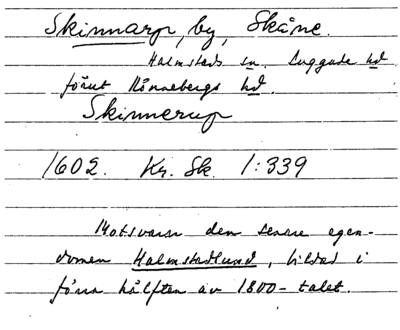 Skinnarp, by, Skåne.
Halmstads sn. Luggude hd
förut Rönnebergs hd.
Skinnerup
1602. Kr. Sk. 1:339
Motsvarar den senare egen-
domen Halmstadlund, bildad i
förra hälften av 1800-talet.